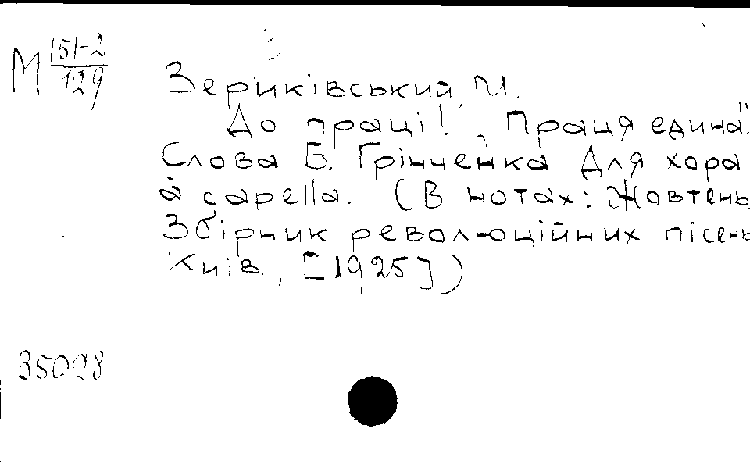 М 151-2
129
Зериківський, П.
До праці! „Праця едина".
Слова Б. Грінченка Для хора
à capella. (В нотах: Жовтень
Збірник революційних пісень
Київ, [1925])
35028